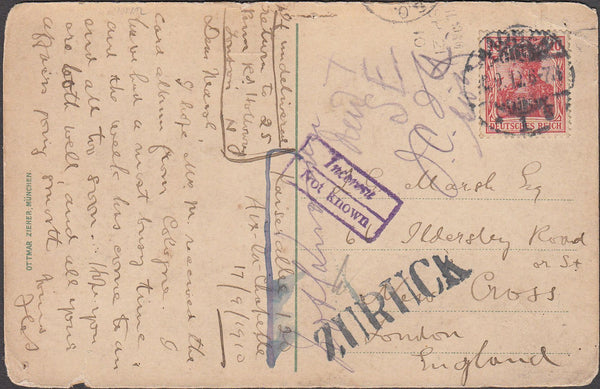 If undelivered
Return to 25
Tuna Rd Holloway
London N
Kaiserallee 120
Aix-la-Chapelle
17/9/1910
Dear Marsh,
I hope Mr M received the
card album from Cologne. I
have had a most busy time
and the week has come to an
end all too soon. Hope you
are both well, and all your
affairs going smooth. Yours
OTTMAR ZIEHER, MÜNCHEN.
DEUTSCHES REICH
Inconnu
Not known
ZURÜCK
Marsh Esq
6 Ildersley Road
or St
New Cross
London
England